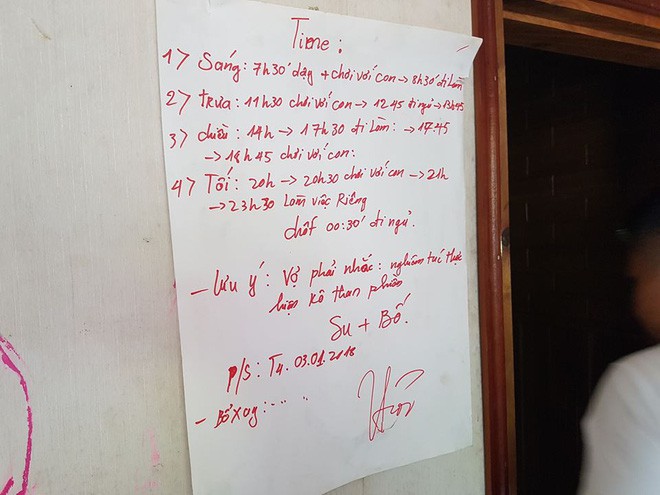 Time:
1> Sáng: 7h30' dậy + chơi với con → 8h30' đi làm
2> trưa: 11h30 chơi với con → 12 45 đi ngủ → 13h45
3> chiều: 14h → 17h30 đi làm: → 17h45
→ 18h45 chơi với con:
4> Tối: 20h → 20h30 chơi với con → 21h
→ 23h30 Làm việc Riêng
chốt 00:30' đi ngủ.
- Lưu ý: Vợ phải nhắc: nghiêm túc thực
hiện kô than phiền
Su + Bố.
P/S: T4. 03.01.2018
- Bổ xug: .....